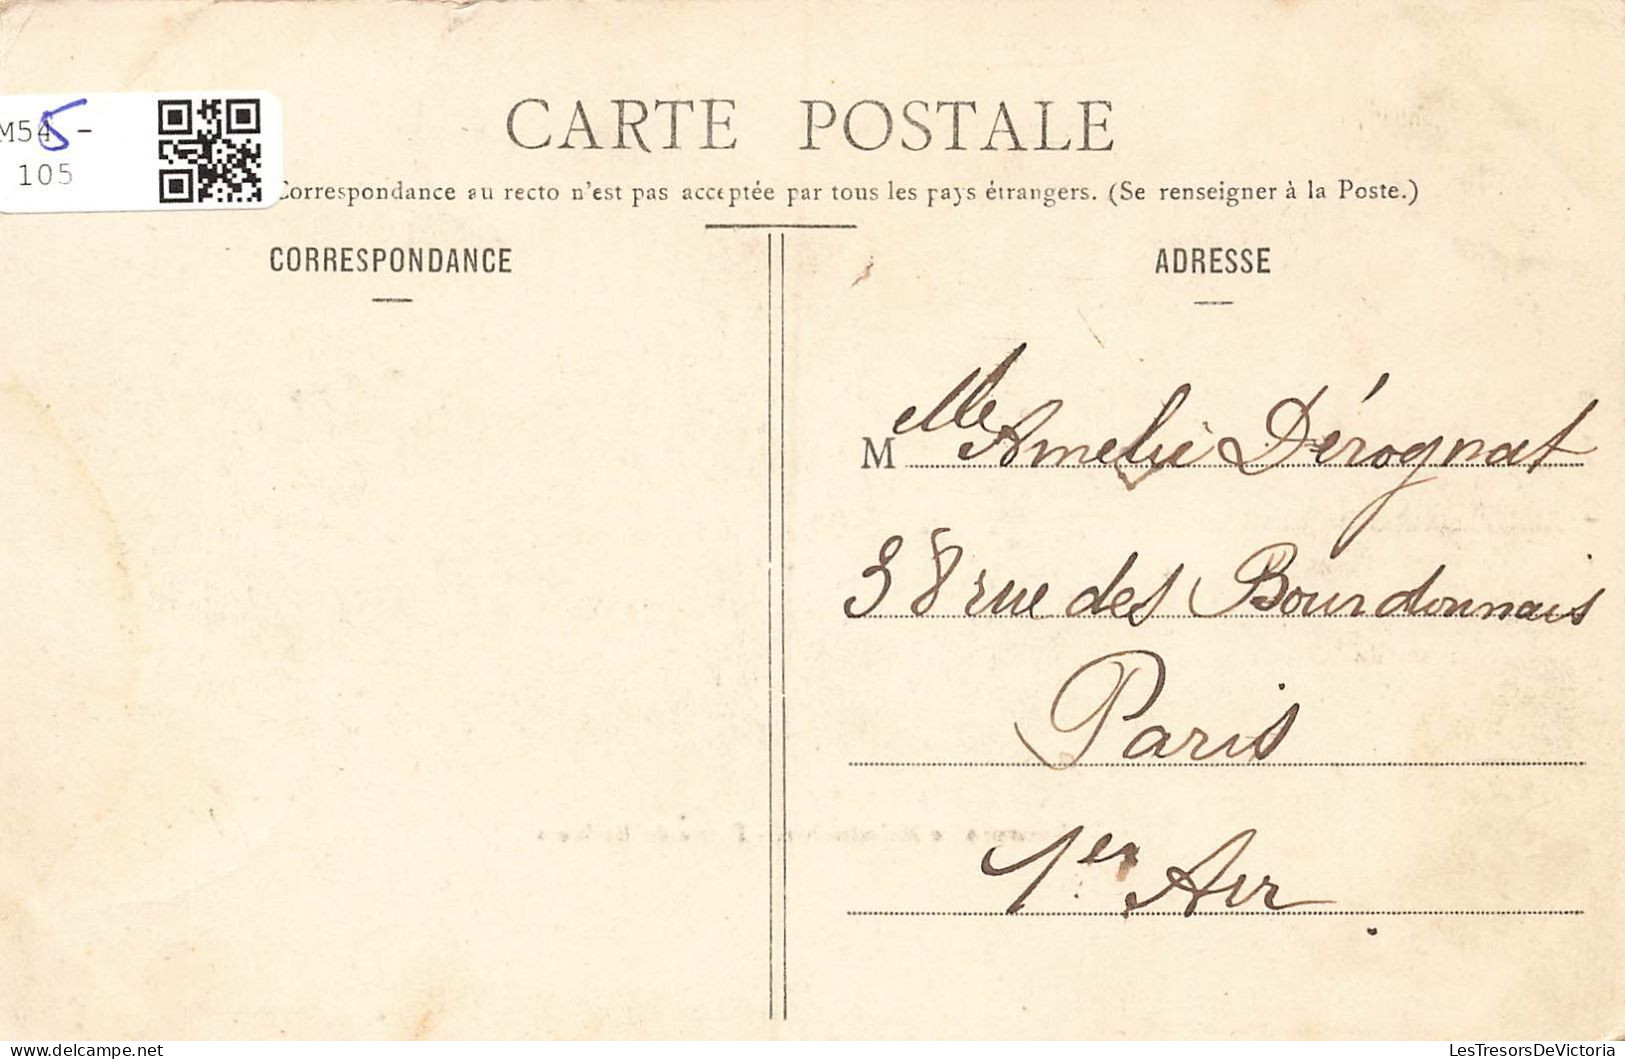 CARTE POSTALE
M545 -
105
Correspondance au recto n'est pas acceptée par tous les pays étrangers. (Se renseigner à la Poste.)
CORRESPONDANCE
ADRESSE
Melle Amelie Dérognat
38 rue des Bourdonnais
Paris
1er Arr
delcampe.net
LesTresorsDeVictoria